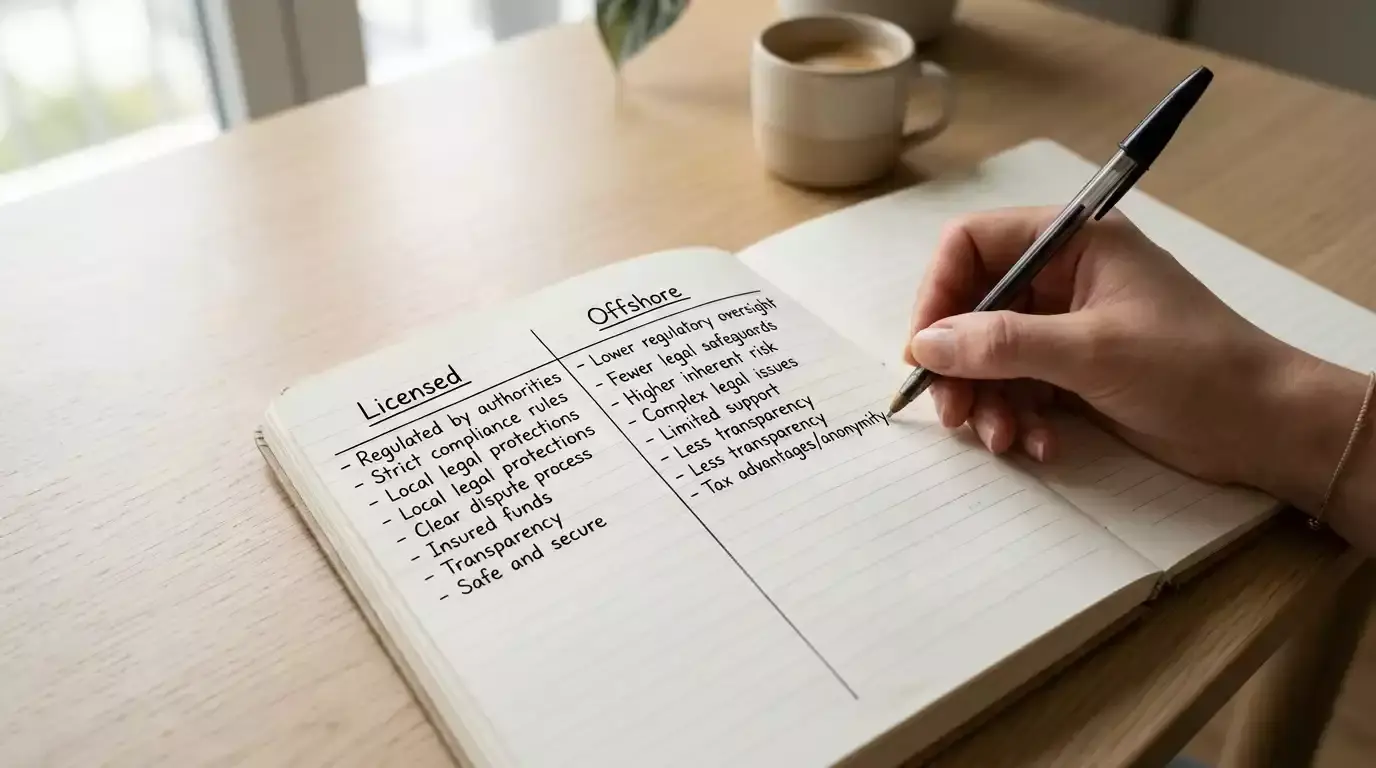 Licensed
- Regulated by authorities
- Strict compliance rules
- Local legal protections
- Local legal protections
- Clear dispute process
- Insured funds
- Transparency
- Safe and secure
Offshore
- Lower regulatory oversight
- Fewer legal safeguards
- Higher inherent risk
- Complex legal issues
- Limited support
- Less transparency
- Less transparency
- Tax advantages/anonymity